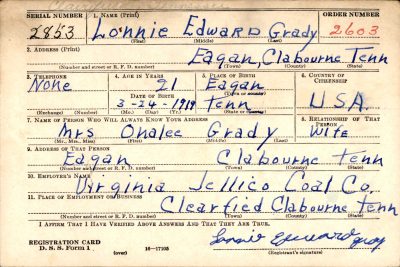 SERIAL NUMBER 1. NAME (Print) ORDER NUMBER
2853 Lonnie Edward Grady 2603
(First) (Middle) (Last)
2. ADDRESS (Print)
Eagan, Clabourne Tenn
(Number and street or R. F. D. number) (Town) (County) (State)
3. TELEPHONE 4. AGE IN YEARS 5. PLACE OF BIRTH 6. COUNTRY OF CITIZENSHIP
None 21 Eagan
DATE OF BIRTH (Town or county)
3-24-1919 Tenn U.S.A.
(Exchange) (No.) (Mo.) (Day) (Yr.) (State or country)
7. NAME OF PERSON WHO WILL ALWAYS KNOW YOUR ADDRESS 8. RELATIONSHIP OF THAT PERSON
Mrs Onalee Grady Wife
(Mr., Mrs., Miss) (First) (Middle) (Last)
9. ADDRESS OF THAT PERSON
Eagan, Clabourne Tenn
(Number and street or R. F. D. number) (Town) (County) (State)
10. EMPLOYER'S NAME
Virginia Jellico Coal Co.
11. PLACE OF EMPLOYMENT OR BUSINESS
Clearfied Clabourne Tenn
(Number and street or R. F. D. number) (Town) (County) (State)
I AFFIRM THAT I HAVE VERIFIED ABOVE ANSWERS AND THAT THEY ARE TRUE.
REGISTRATION CARD
D. S. S. Form 1 (over) 16—17105 Lonnie Edward Grady
(Registrant's signature)